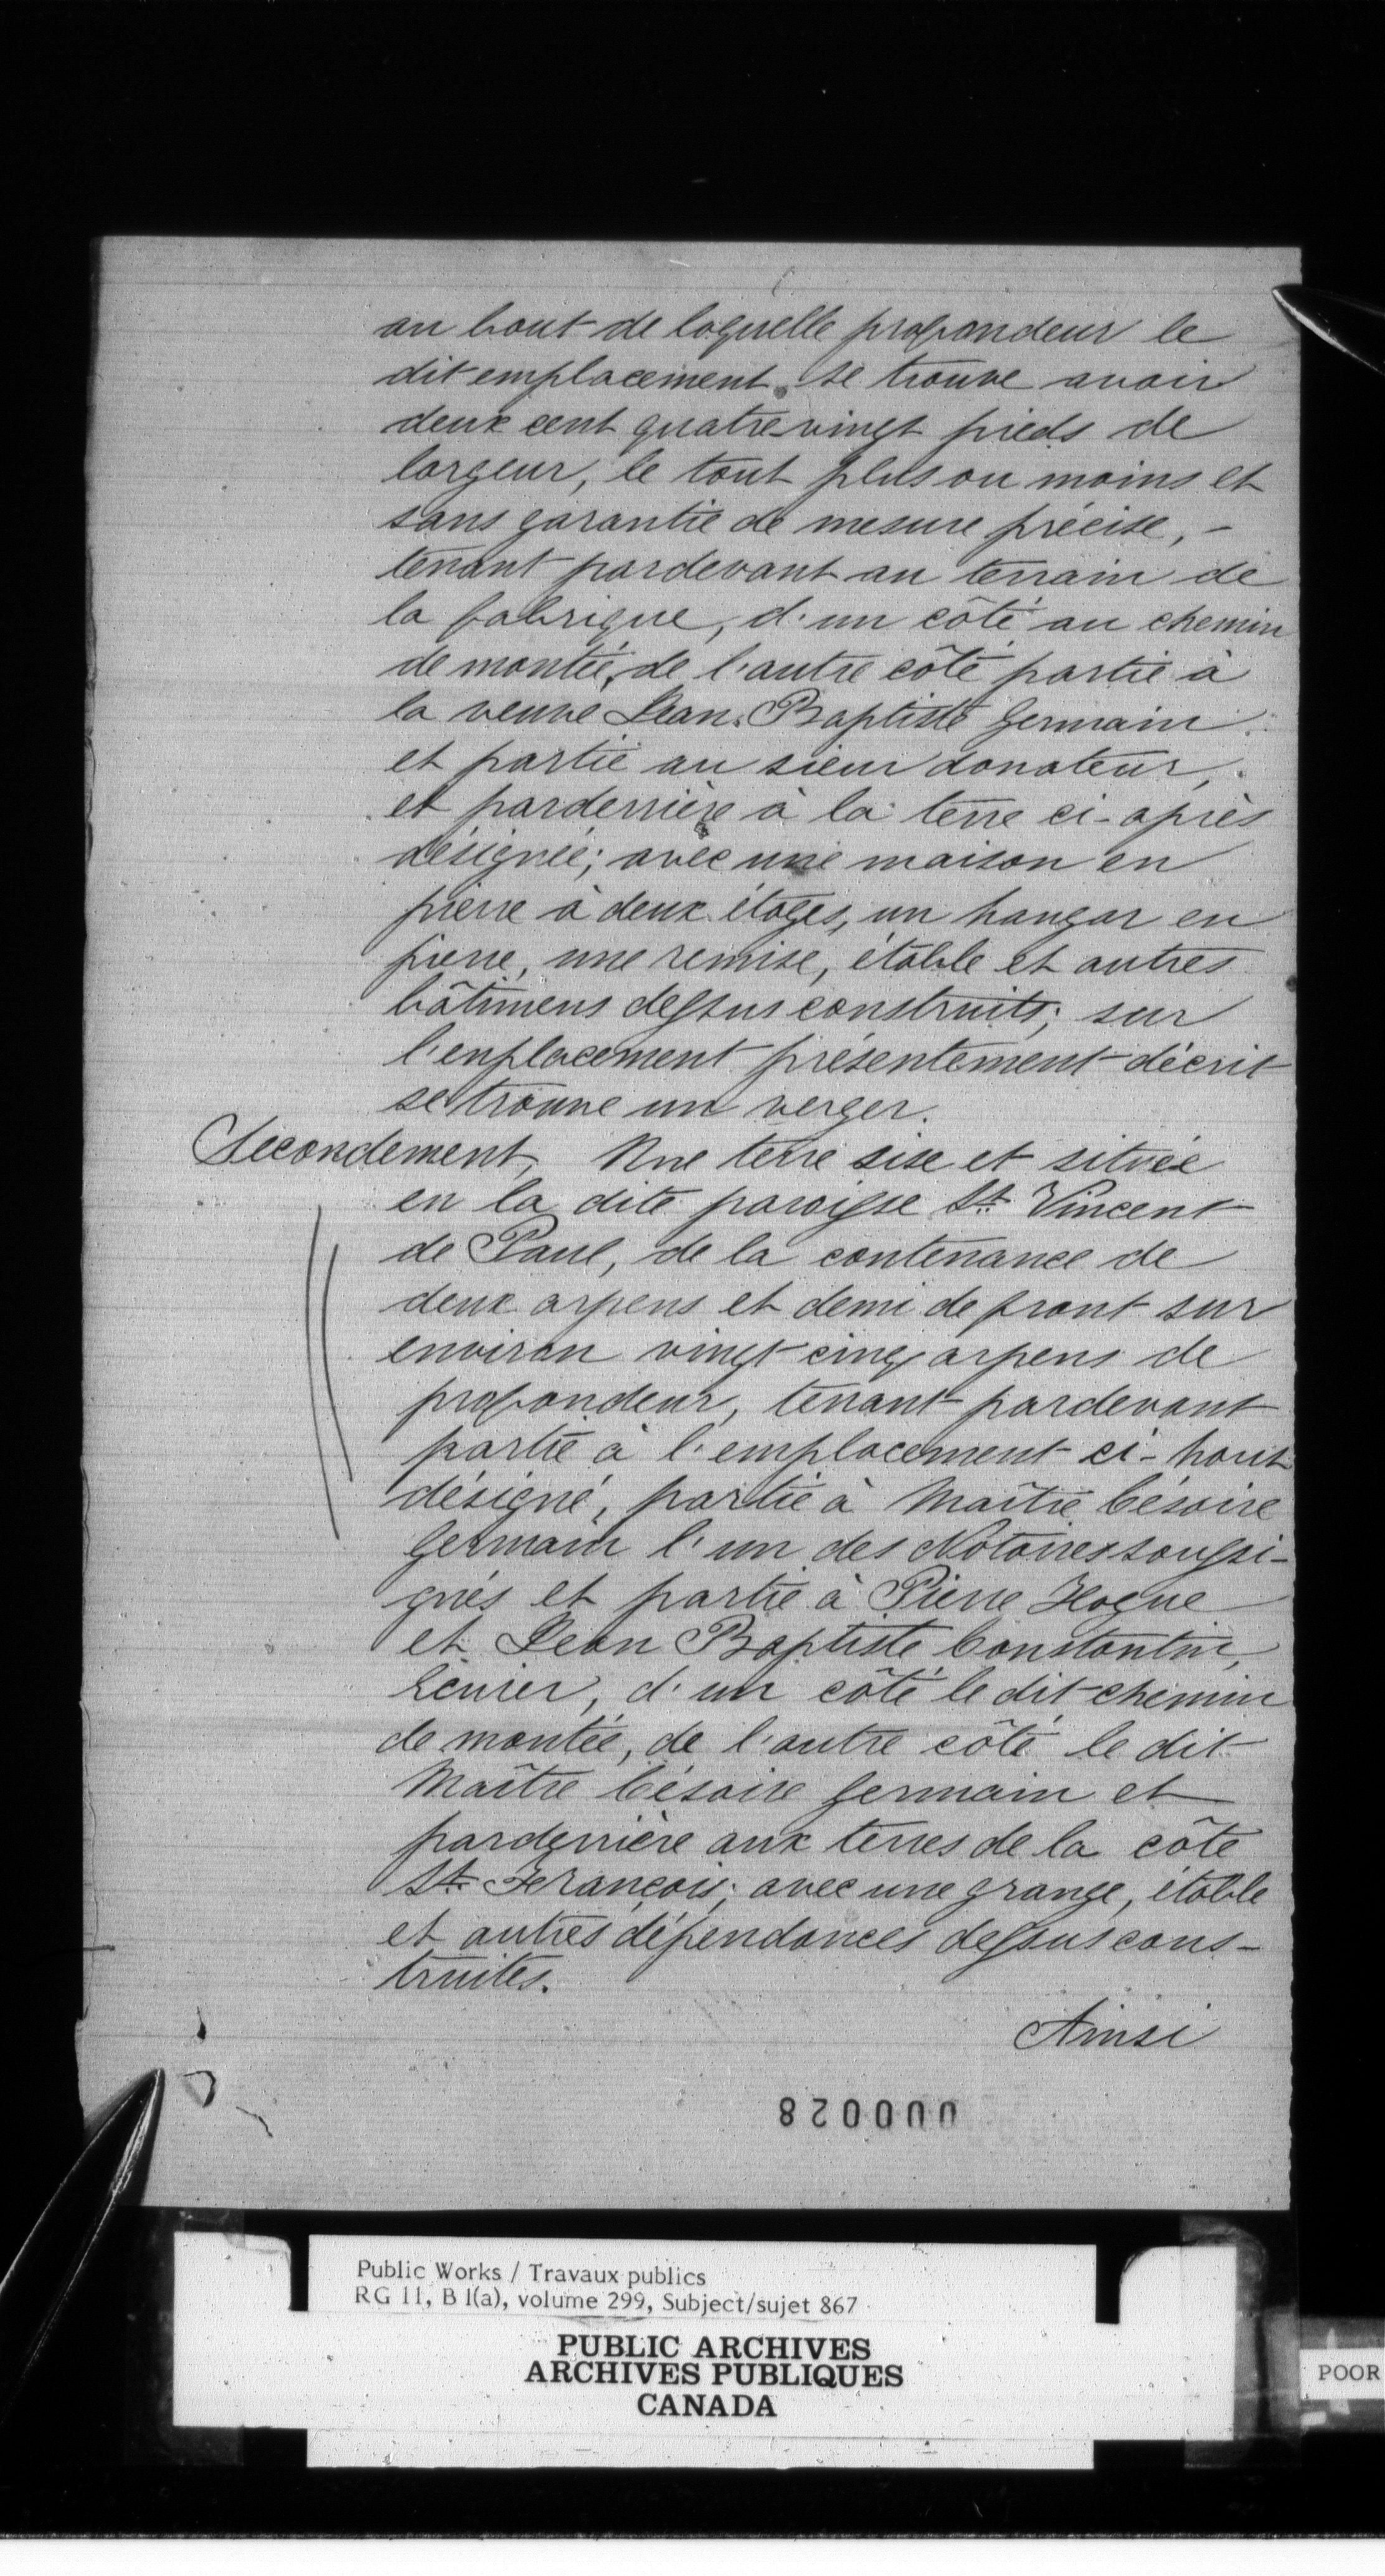 au bout de laquelle profondeur le
dit emplacement se trouve avoir
deux cent quatre-vingt pieds de
largeur, le tout plus ou moins et
sans garantie de mesure précise, -
tenant pardevant au terrain de
la fabrique, d'un côté au chemin
de montée, de l'autre côté partie à
la veuve Jean-Baptiste Germain
et partie au sieur donateur,
et parderrière à la terre ci-après
désignée; avec une maison en
pierre à deux étages, un hangar en
pierre, une remise, étable et autres
bâtimens dessus construits; sur
l'enplacement présentement décrit
se trouve un verger.
Secondement, Une terre sise et située
en la dite paroisse St. Vincent
de Paul, de la contenance de
deux arpens et demi de front sur
environ vingt cinq arpens de
profondeur, tenant pardevant
partie à l'emplacement ci-haut
désigné, partie à Maître Césaire
Germain l'un des Notaires soussi-
gnés et partie à Pierre Hogue
et Jean Baptiste Constantin,
Ecuier, d'un côté le dit chemin
de montée, de l'autre côté le dit
Maître Césaire Germain et
parderrière aux terres de la côte
St. François; avec une grange, étable
et autres dépendances dessus cons-
truites.
Ainsi
000028
Public Works / Travaux publics
RG 11, B 1(a), volume 299, Subject/sujet 867
PUBLIC ARCHIVES
ARCHIVES PUBLIQUES
CANADA
POOR